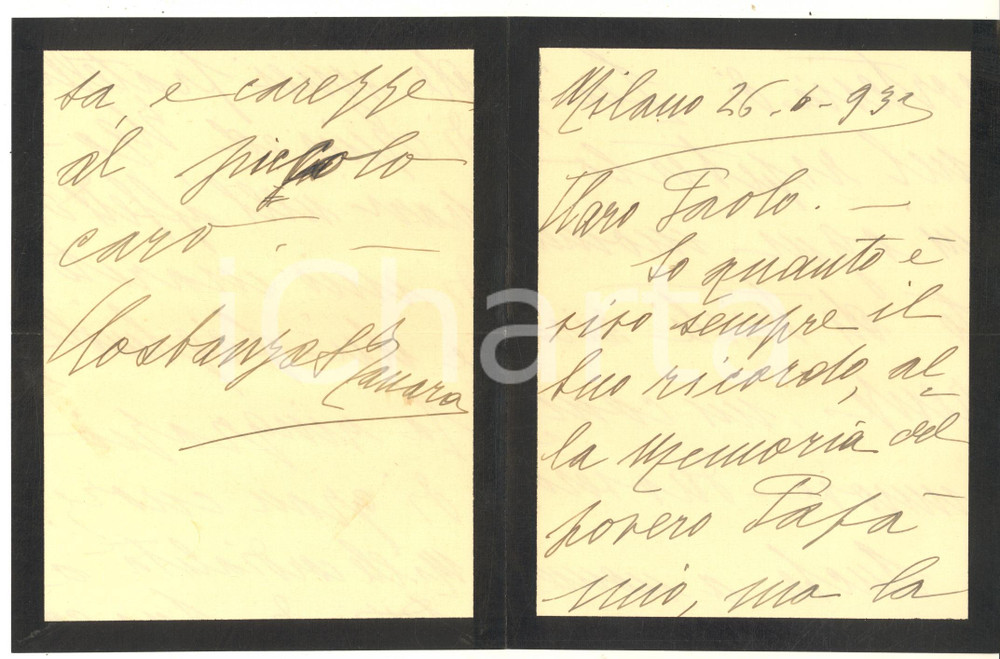 Milano 26-6-932
Caro Paolo. —
So quanto è
vivo sempre il
tuo ricordo, al-
la Memoria del
povero Papà
mio, ma la
sa, e carezze
al piccolo
caro. —
Costanza
iCharta